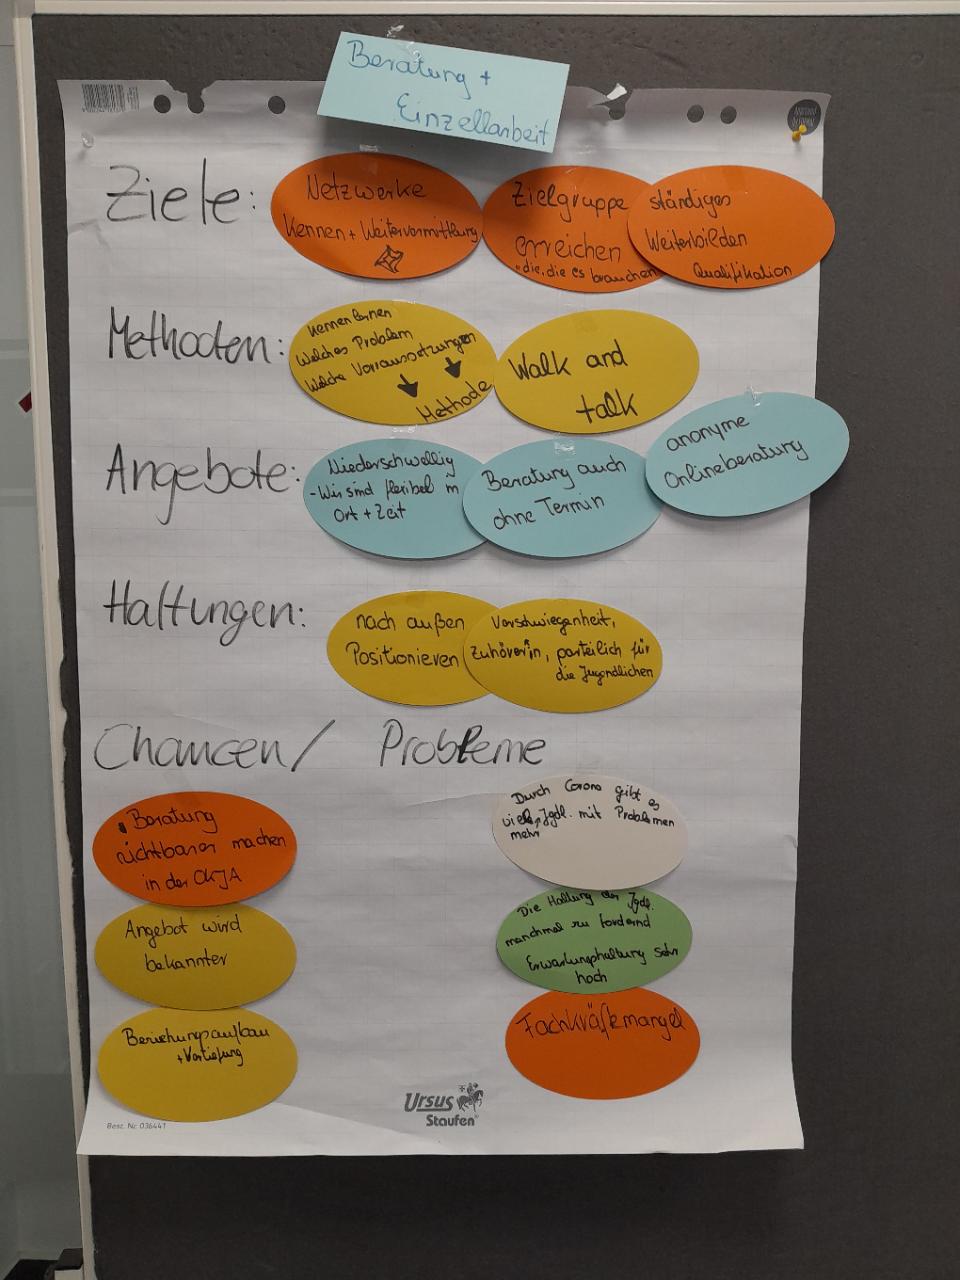 Beratung +
Einzellarbeit
Ziele:
Netzwerke
Kennen + Weitervermittlung
Zielgruppe
erreichen
"die, die es brauchen
ständiges
Weiterbilden
Qualifikation
Methoden:
Kennenlernen
Welches Problem
Welche Vorraussetzungen
Methode
Walk and
talk
Angebote:
Niederschwellig
- Wir sind flexibel in
Ort + Zeit
Beratung auch
ohne Termin
anonyme
Onlineberatung
Haltungen:
nach außen
Positionieren
Verschwiegenheit,
Zuhörer*in, parteilich für
die Jugendlichen
Chancen/ Probleme
Beratung
sichtbarer machen
in der OKJA
Angebot wird
bekannter
Beziehungsaufbau
+ Vertiefung
Durch Corona gibt es
viele Jgdl. mit Problemen
mehr
Die Haltung der Jgdl.
manchmal zu fordernd
Erwartungshaltung sehr
hoch
Fachkräftemangel
Ursus
Staufen
Best. Nr. 036441